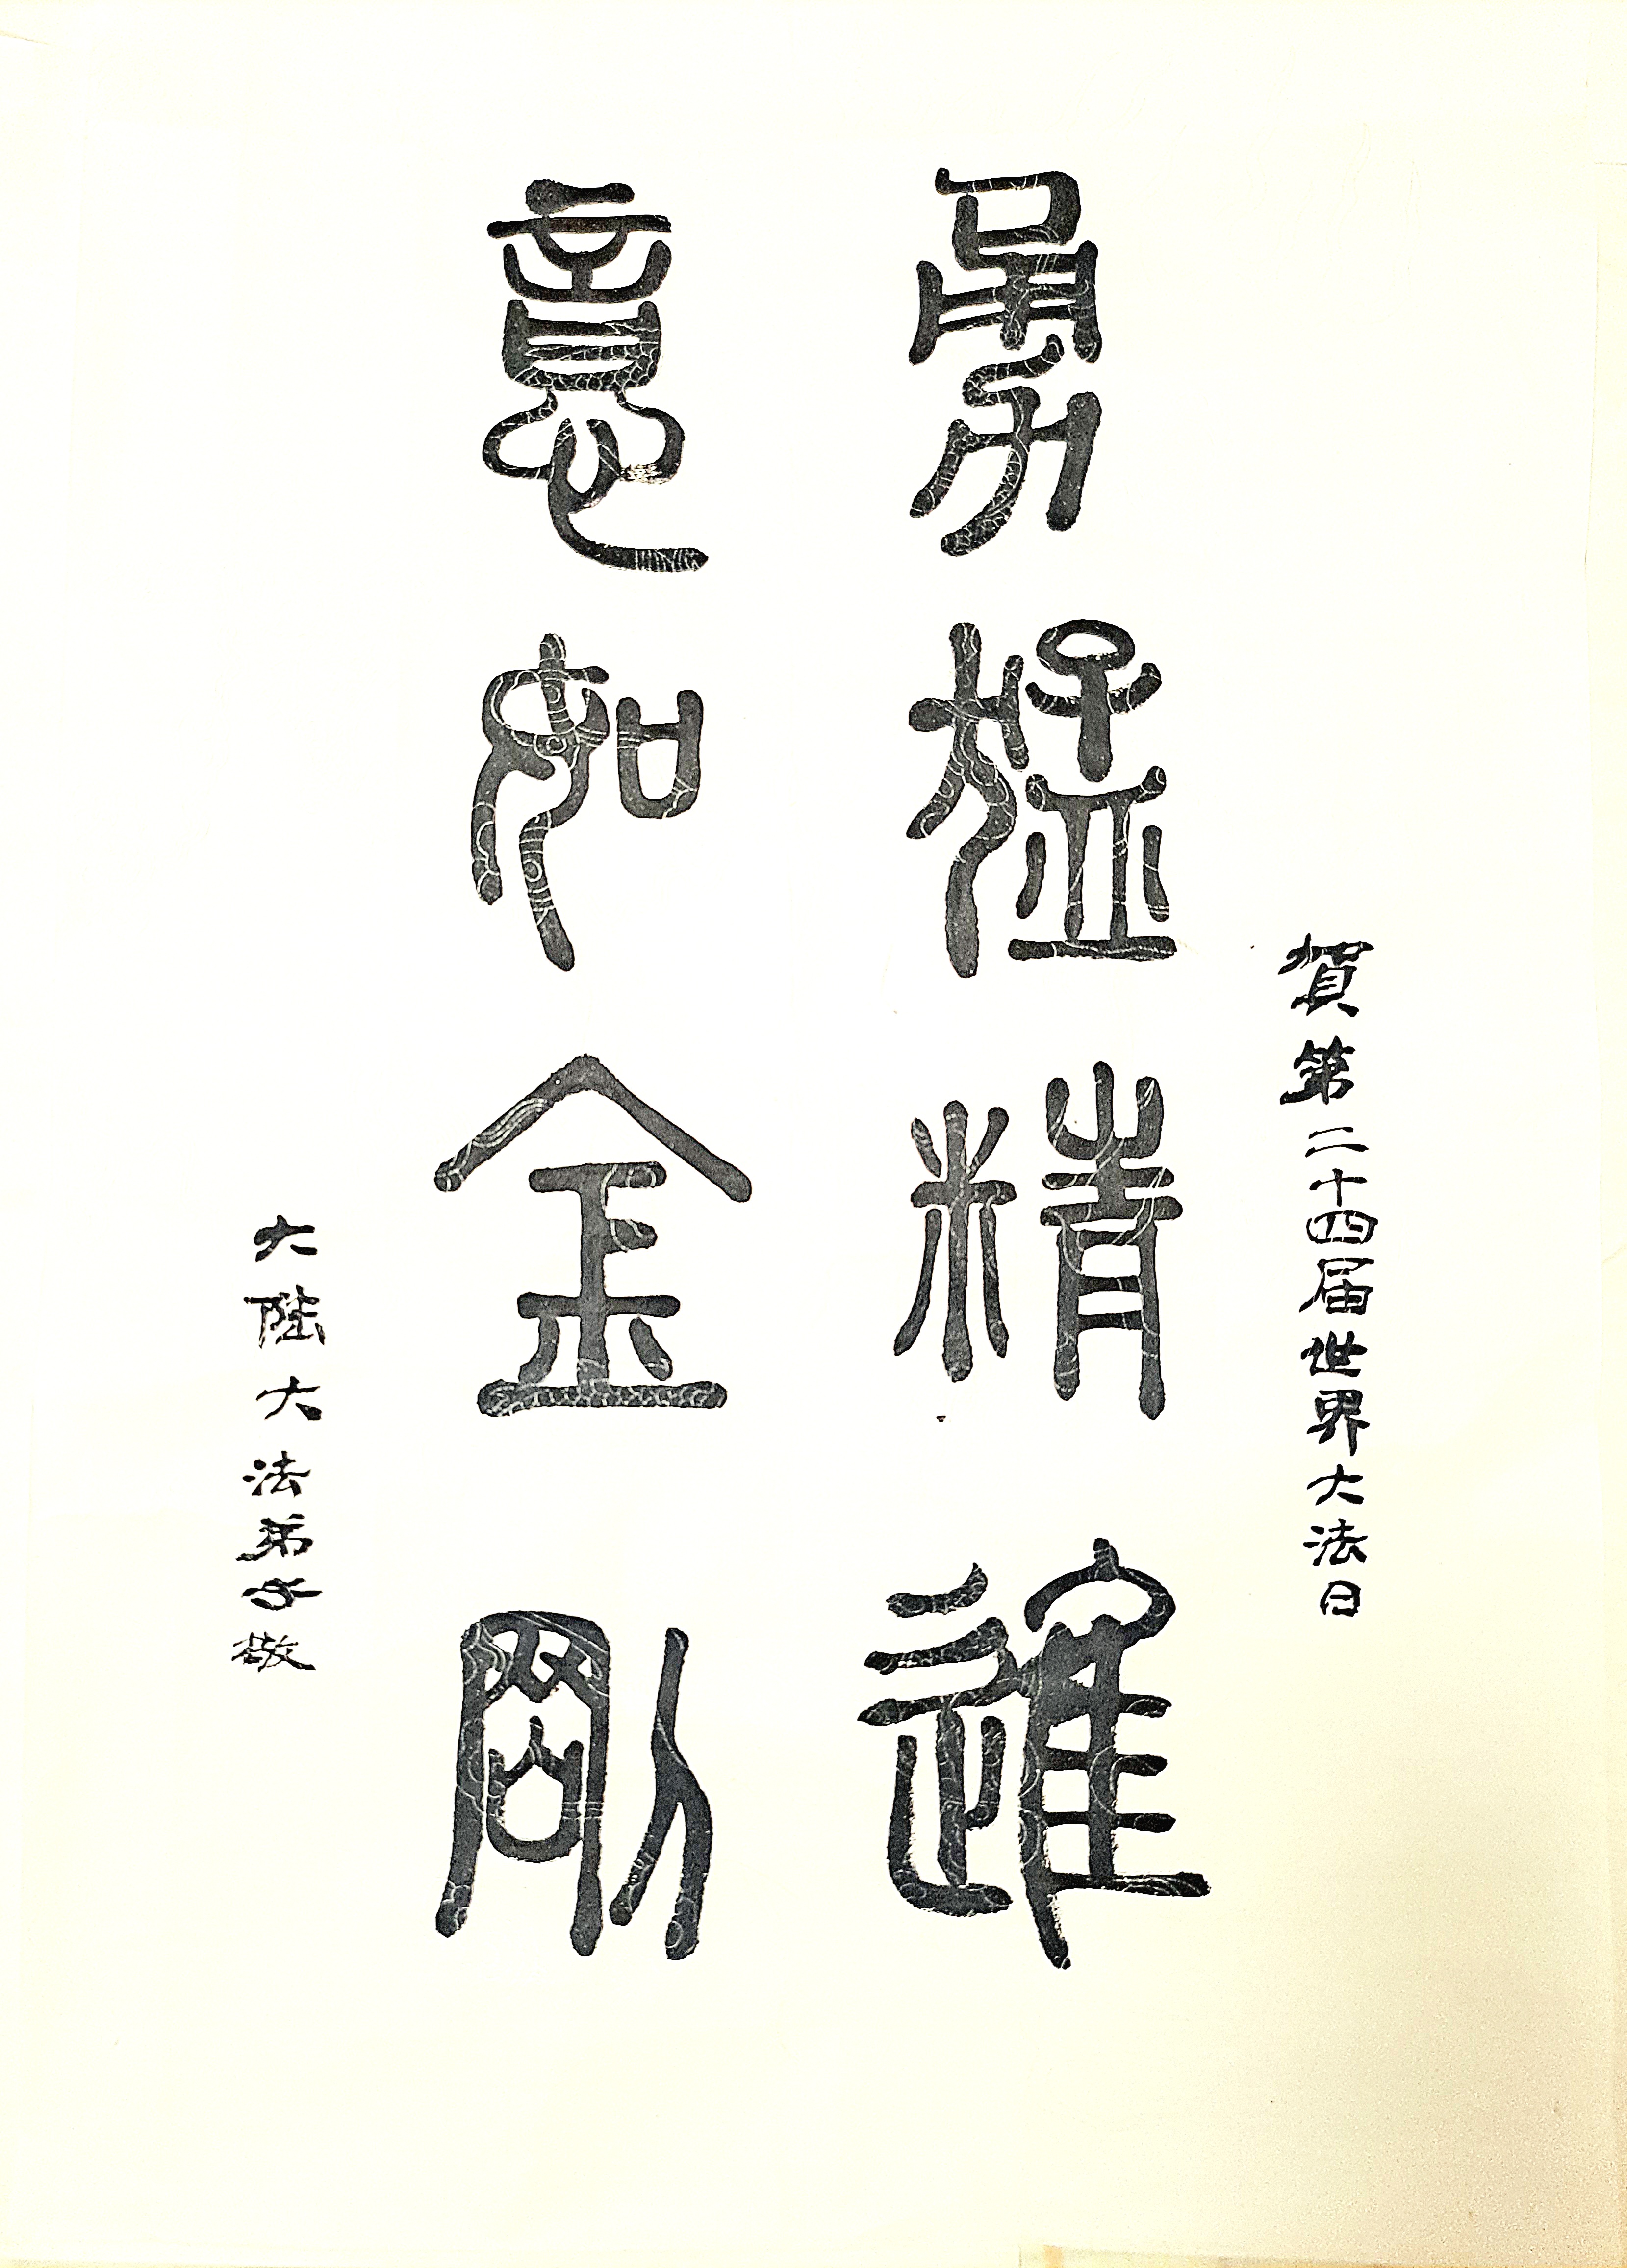 賀第二十四届世界大法日
勇猛精進
意如金剛
大陸大法弟子敬